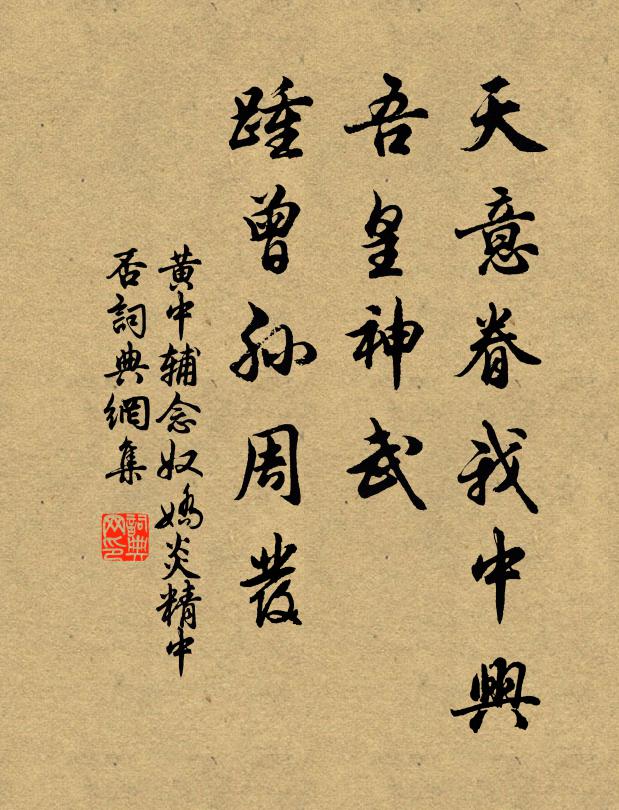 天意眷我中興
吾皇神武
踵曾孫周發
黄中辅念奴嬌炎精中
否詞典網集
詞典网印